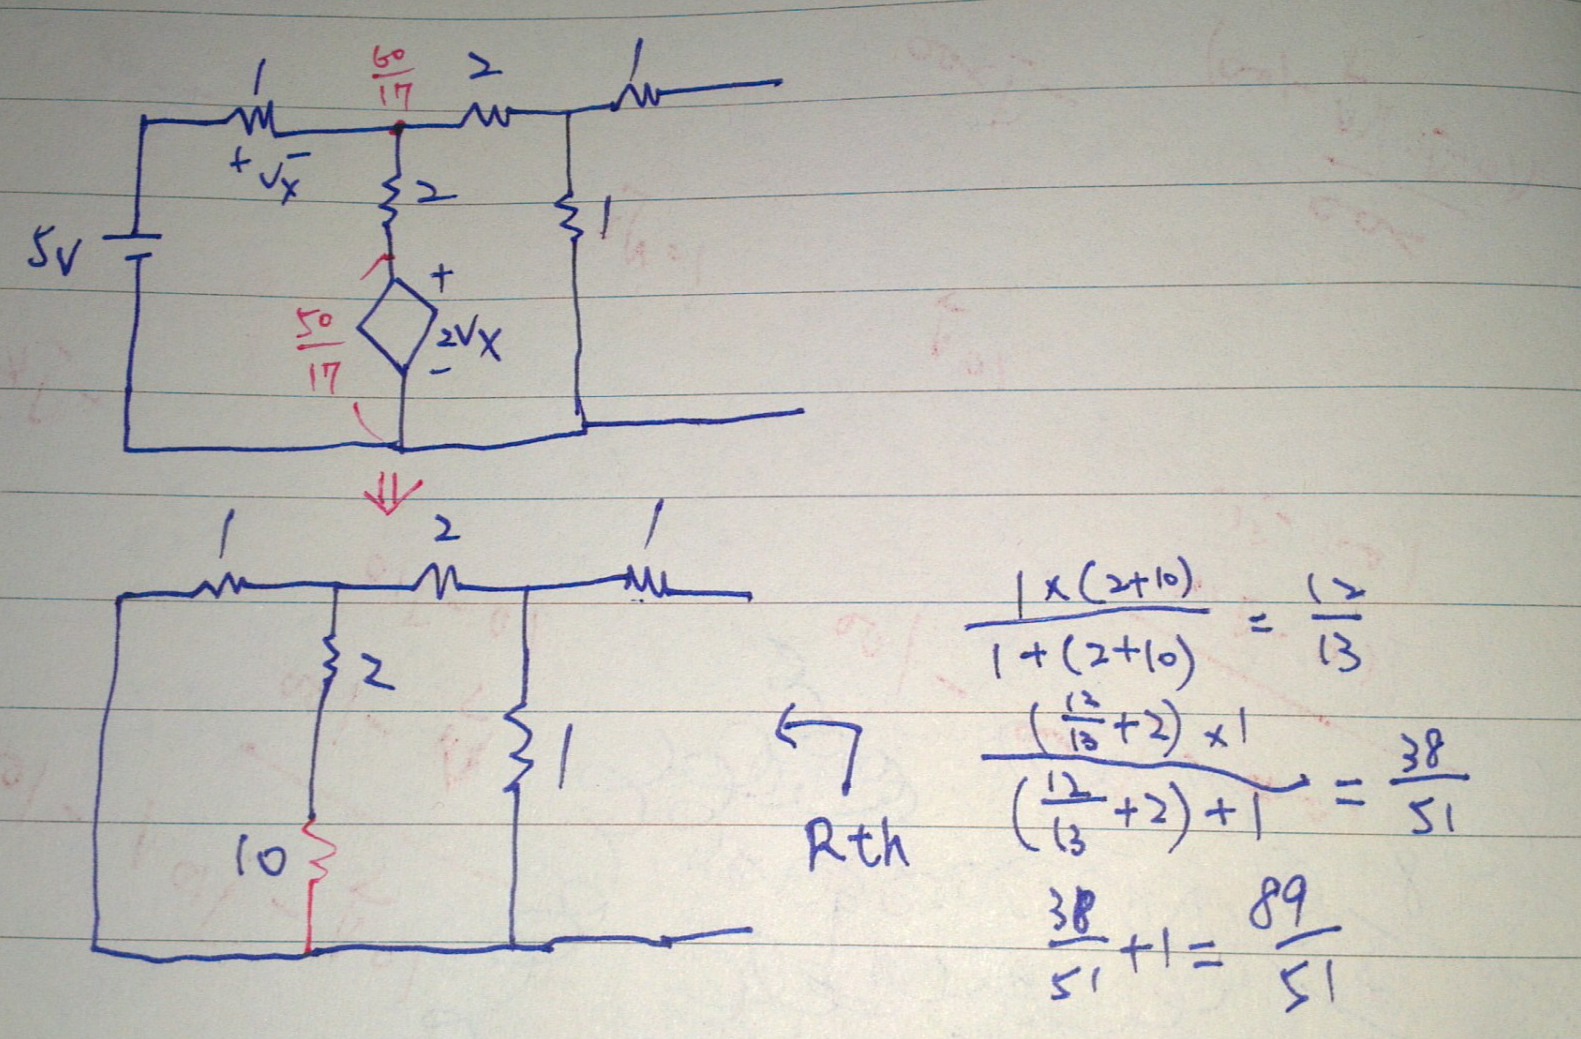 1
60/17
2
1
+ Vx −
2
1
5V
+
50/17
2Vx
−
⇓
1
2
1
2
1
10
Rth
1×(2+10) / 1+(2+10) = 12/13
(12/13+2)×1 / (12/13+2)+1 = 38/51
38/51+1=89/51